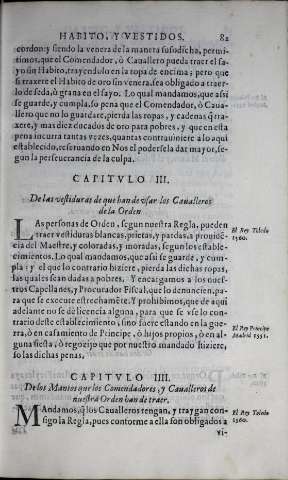 HABITO, Y VESTIDOS. 82
cordon: y siendo la venera de la manera susodicha, permi-
timos, que el Comendador, ò Cauallero pueda traer el sa-
yo sin Habito, trayendolo en la ropa de encima; pero que
si traxere el Habito de oro sin venera, sea obligado a traer-
lo de seda, ò grana en el sayo. Lo qual mandamos, que assi
se guarde, y cumpla, so pena que el Comendador, ò Caua-
llero que no lo guardare, pierda las ropas, y cadenas q̃ tra-
xere, y mas diez ducados de oro para pobres, y que en esta
pena incurra tantas vezes, quantas contrauiniere a lo aqui
establecido, reseruando en Nos el poder sela dar mayor, se-
gun la perseuerancia de la culpa.
CAPITVLO III.
De las vestiduras de que han de vsar los Caualleros
de la Orden
LAs personas de Orden, segun nuestra Regla, pueden
traer vestiduras blancas, prietas, y pardas, a prouidẽ-
cia del Maestre, y coloradas, y moradas, segun los estable-
cimientos. Lo qual mandamos, que assi se guarde, y cum-
pla: y el que lo contrario hiziere, pierda las dichas ropas,
las quales sean dadas a pobres. Y encargamos a los nues-
tros Capellanes, y Procurador Fiscal, que lo denuncien, pa-
ra que se execute estrechamẽte. Y prohibimos, que de aqui
adelante no se dè licencia alguna, para que se vse lo con-
trario deste establecimiento, sino fuere estando en la guer-
ra, ò en casamiento de Principe, ò hijos propios, ò en al-
guna fiesta, ò regozijo que por nuestro mandado hiziere,
so las dichas penas.
El Rey Toledo
1560.
El Rey Principe
Madrid 1551.
CAPITVLO IIII.
De los Mantos que los Comendadores, y Caualleros de
nuestra Orden han de traer.
MAndamos, q̃ los Caualleros tengan, y traygan con-
sigo la Regla, pues conforme a ella son obligados a
El Rey Toledo
1560.
vi-